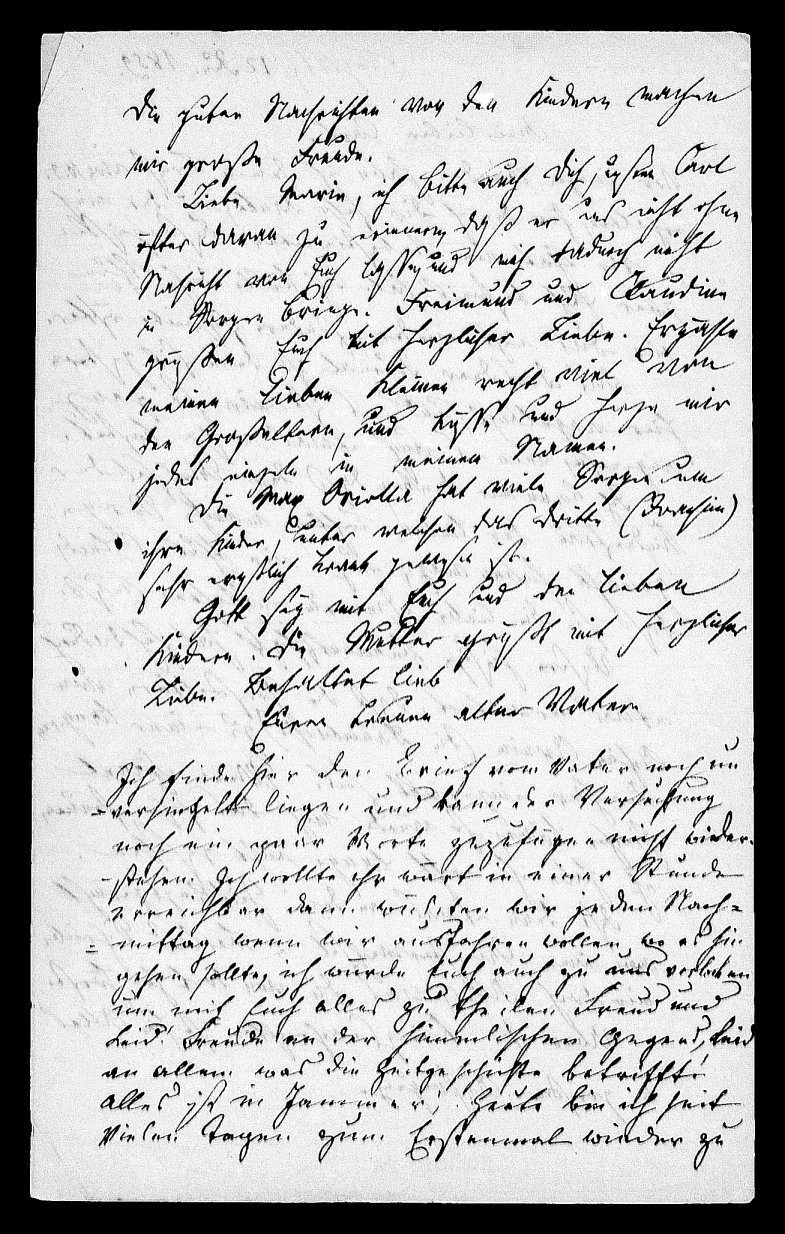 Die guten Nachrichten von den Kindern machen
mir große Freude.
Liebe Marie, ich bitte auch Dich, unsern Carl
öfter daran zu erinnern, daß er uns nicht ohne
Nachricht von Euch lasse, und mich dadurch nicht
in Sorgen bringe. Freimund und Claudine
grüßen Euch mit herzlicher Liebe. Erzähle
meinen lieben Kleinen recht viel von
den Großeltern, und küsse und herze mir
jedes einzeln in meinem Namen.
Die Max Oriolla hat viele Sorgen um
ihre Kinder, unter welchen das dritte (Joachim)
sehr ernstlich krank gewesen ist.
Gott sey mit Euch und den lieben
Kindern. Die Mutter grüßt mit herzlicher
Liebe. Behaltet lieb
Euren treuen alten Vater
Ich finde hier den Brief vom Vater noch un
-versiegelt liegen und kann der Versuchung
noch ein paar Worte zuzufügen nicht wieder-
-stehen. Ich wollte ihr wärt in einer Stunde
erreichbar dann wüßten wir jeden Nach=
=mittag wenn wir ausfahren wollen, wo es hin
gehen sollte, ich würde Euch auch zu uns verlocken
um mit Euch alles zu theilen Freud und
Leid! Freude an der himmlischen Gegend, Leid
an allem was die Zeitgeschichte betrifft!
alles ist in Jammer! Heute bin ich seit
Vielen Tagen zum Erstenmal wieder zu
12. 1859.